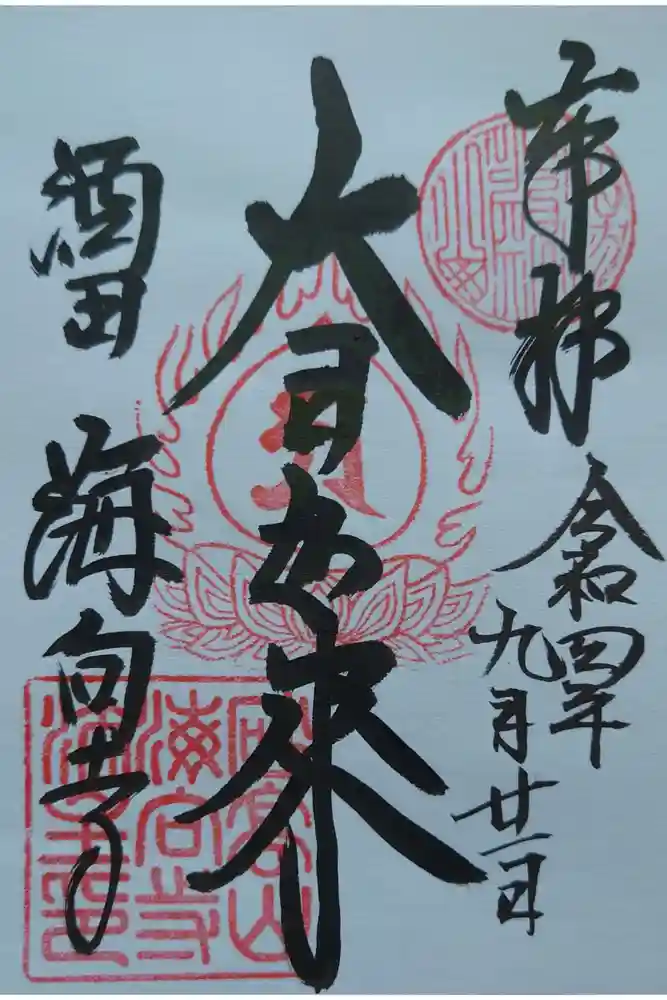 奉拝
令和四年
九月廿一日
大日如来
酒田 海向寺